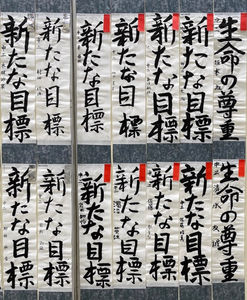 生命の尊重
新たな目標
新たな目標
新たな目標
新たな目標
新たな目標
新たな目標
生命の尊重
新たな目標
新たな目標
新たな目標
新たな目標
新たな目標
新たな目標